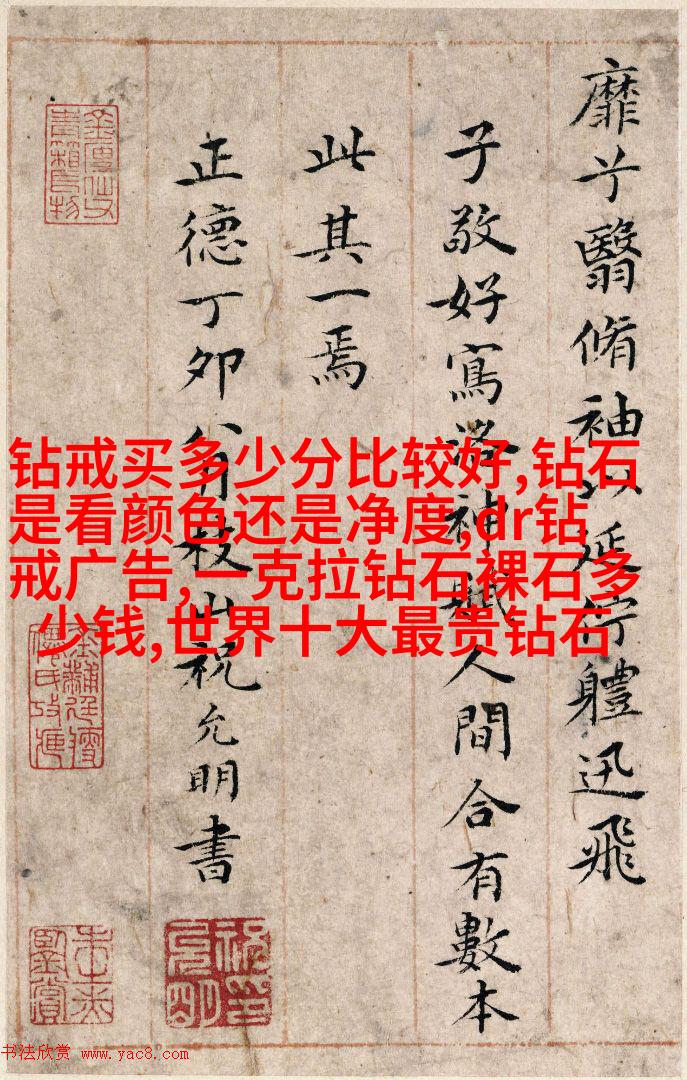 靡兮翳脩袖以延佇體迅飛
子敬好寫洛神賦人間合有數本
此其一焉
正德丁夘八月枝山祝允明書
钻戒买多少分比较好,钻石
是看颜色还是净度,dr钻
戒广告,一克拉钻石裸石多
少钱,世界十大最贵钻石
书法欣赏 www.yac8.com